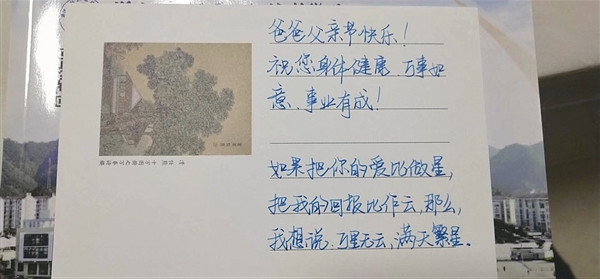 爸爸父亲节快乐！
祝您身体健康、万事如
意、事业有成！
如果把你的爱比做星，
把我的回报比作云，那么，
我想说，万星无云，满天繁星。